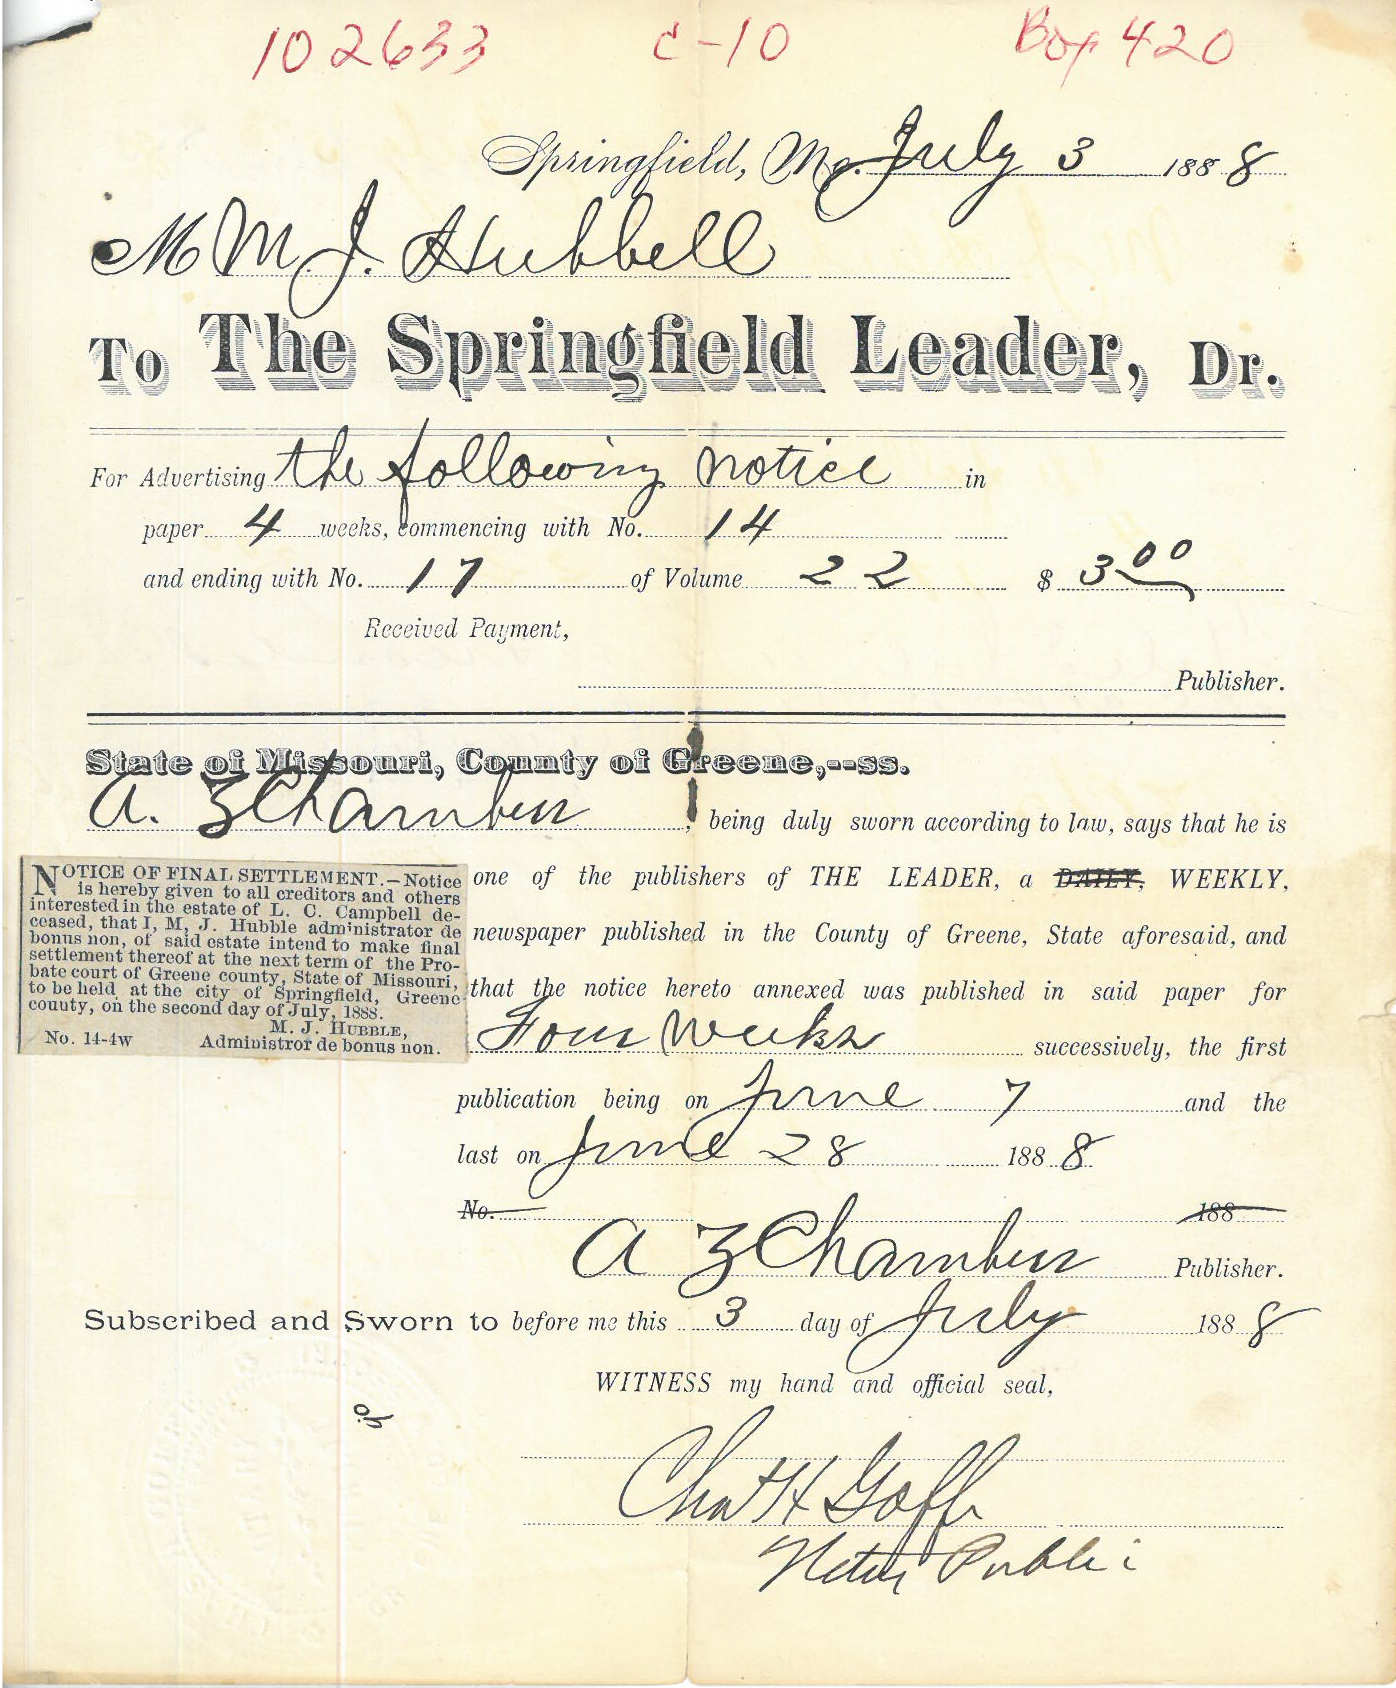 102633 C-10 Box 420
Springfield, Mo. July 3 1888
M M. J. Hubbell
To The Springfield Leader, Dr.
For Advertising the following notice in
paper 4 weeks, commencing with No. 14
and ending with No. 17 of Volume 22 $ 3.00
Received Payment,
Publisher.
State of Missouri, County of Greene,--ss.
A. Z Chambers, being duly sworn according to law, says that he is
one of the publishers of THE LEADER, a DAILY, WEEKLY,
newspaper published in the County of Greene, State aforesaid, and
that the notice hereto annexed was published in said paper for
Four Weeks successively, the first
publication being on June 7 and the
last on June 28 1888
No. 188
A Z Chambers Publisher.
NOTICE OF FINAL SETTLEMENT.—Notice
is hereby given to all creditors and others
interested in the estate of L. C. Campbell de-
ceased, that I, M, J. Hubble administrator de
bonus non, of said estate intend to make final
settlement thereof at the next term of the Pro-
bate court of Greene county, State of Missouri,
to be held at the city of Springfield, Greene
county, on the second day of July, 1888.
M. J. HUBBLE,
No. 14-4w Administror de bonus non.
Subscribed and Sworn to before me this 3 day of July 1888
WITNESS my hand and official seal,
Chas H Goffe
Notary Public